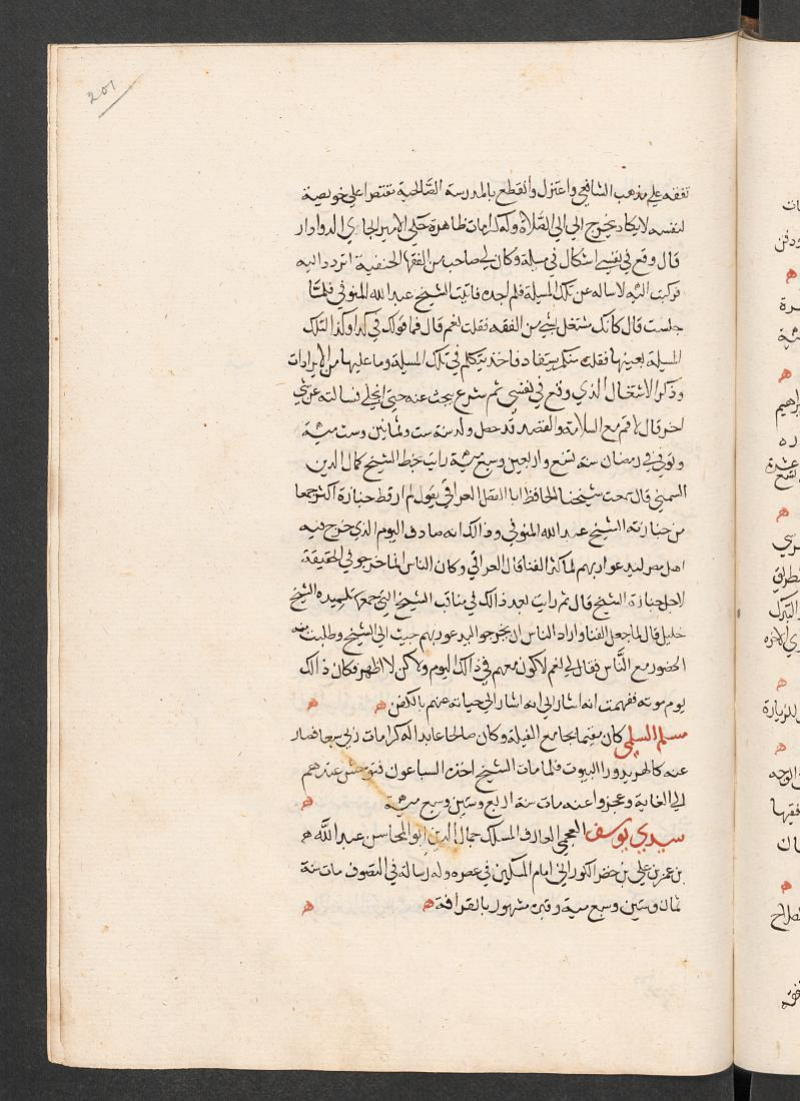 201
تفقه على مذهب الشافعي واعتزل وانقطع بالمدرسة الصّالحية مقتصرا على خويصة
لنفسه لا يكاد يخرج الي الي الصّلاة وله كرامات ظاهرة حكى الامير الجاي الدوادار
قال وقع في نفسي اشكال في مسيلة وكان لي صاحب من الفقها الحنفية اتردد اليه
فركبت اليه لاساله عن تلك المسيلة فلم اجده فاتيت الشيخ عبد الله المنوفي فلمّا
جلست قال كانك تشتغل بشي من الفقه فقلت نعم قال فما قولك في كذا وكذا لتلك
المسيلة بعينها فقلت منكم يستفاد فاخذ يتكلم في تلك المسيلة وما عليها من الايرادات
وذكر الاشتغال الذي وقع في نفسي ثم شرع يبحث عنه حتى انجلى فسالته عن شي
اخر قال لا قم مع السلامة والقصد قد حصل ولد سنة ست وثمانين وست ميئة
وتوفي في رمضان سنة تسع واربعين وسبع ميئة رايت بخط الشيخ كمال الدين
الشمني قال سمعت شيخنا الحافظ ابا الفضل العراقي يقول لم ار قط جنازة اكثر جمعا
من جنازة الشيخ عبد الله المنوفي وذالك انه صادف اليوم الذي خرج فيه
اهل مصر ليدعوا ربهم لما كثر الفنا قال العراقي وكان الناس انما خرجو في الحقيقة
لاجل جنازة الشيخ قال ثم رايت بعد ذالك في مناقب الشيخ التي جمعها تلميذه الشيخ
خليل قال لما جعل الفنا واراد الناس ان يخرجو اليدعو ربهم جيت الي الشيخ وطلبت منه
الحضور مع النَّاس فقال لي نعم لاكون معهم في ذالك اليوم ولاكن لا اظهر فكان ذالك
يوم موته ففهمت انه اشار الي انه اشار الى خبائه عنهم بالكفن ه ه
مسلم السلمي كان مقيما بجامع الفيلة وكان صالحا عابدا له كرامات ربي سبعا فصار
عنه كالهر يدور البيوت فلما مات الشيخ اخذه السباعون فتوحش عندهم
الي الغاية وعجزوا عنه مات سنة اربع وستين وسبع ميئة ه
سيدي يوسف العجمي العارف المسلك جمال الدين ابو المحاسن عبد الله ه
بن عمر بن علي بن خضر الكوراني امام المسلكين في عصره وله رسالة في التصوف مات سنة
ثمان وستين وسبع ميئة وقبره مشهور بالقرافة ه ه